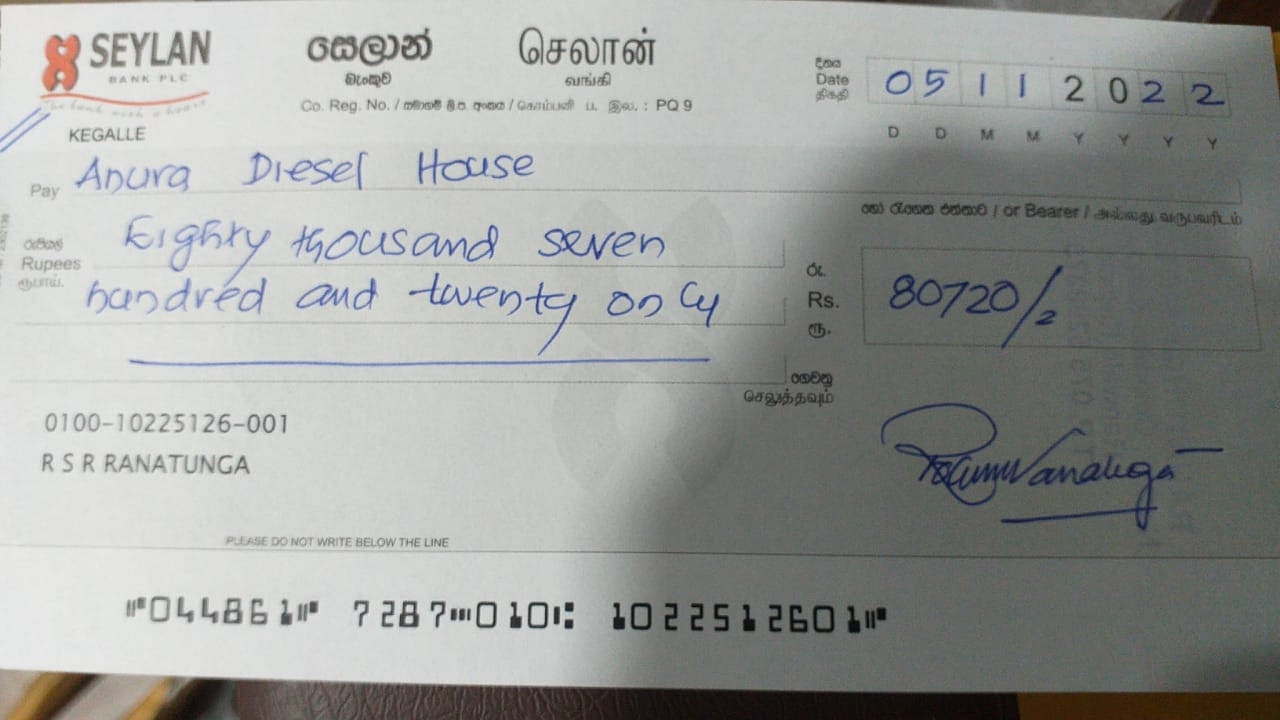 SEYLAN
BANK PLC
The bank with a heart
සෙලාන්
බැංකුව
செலான்
வங்கி
Co. Reg. No. / සමාගම් ලි.ප. අංකය / கொம்பனி ப. இல. : PQ 9
දිනය
Date
திகதி
0 5 1 1 2 0 2 2
D D M M Y Y Y Y
KEGALLE
Pay Anura Diesel House
හෝ රැගෙන එන්නාට / or Bearer / அல்லது வருபவரிடம்
රුපියල්
Rupees
ரூபாய்.
Eighty thousand seven
hundred and twenty only
රු.
Rs.
ரூ.
80720/2
ගෙවනු
செலுத்தவும்
0100-10225126-001
R S R RANATUNGA
PLEASE DO NOT WRITE BELOW THE LINE
⑈044861⑈ 7287⑉010⑆ 1022512601⑈